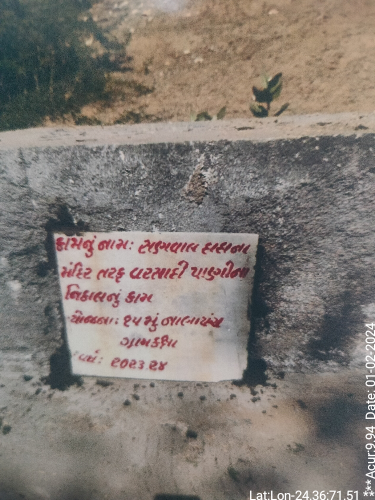 કામનું નામ: સણવાલ દાદાના
મંદિર તરફ વરસાદી પાણીના
નિકાલનું કામ
યોજના: ૧૫ મું નાણાપંચ
ગ્રામકક્ષા
વર્ષ: ૨૦૨૩.૨૪
Lat:Lon-24.36:71.51 ***Acur:9.94 Date: 01-02-2024